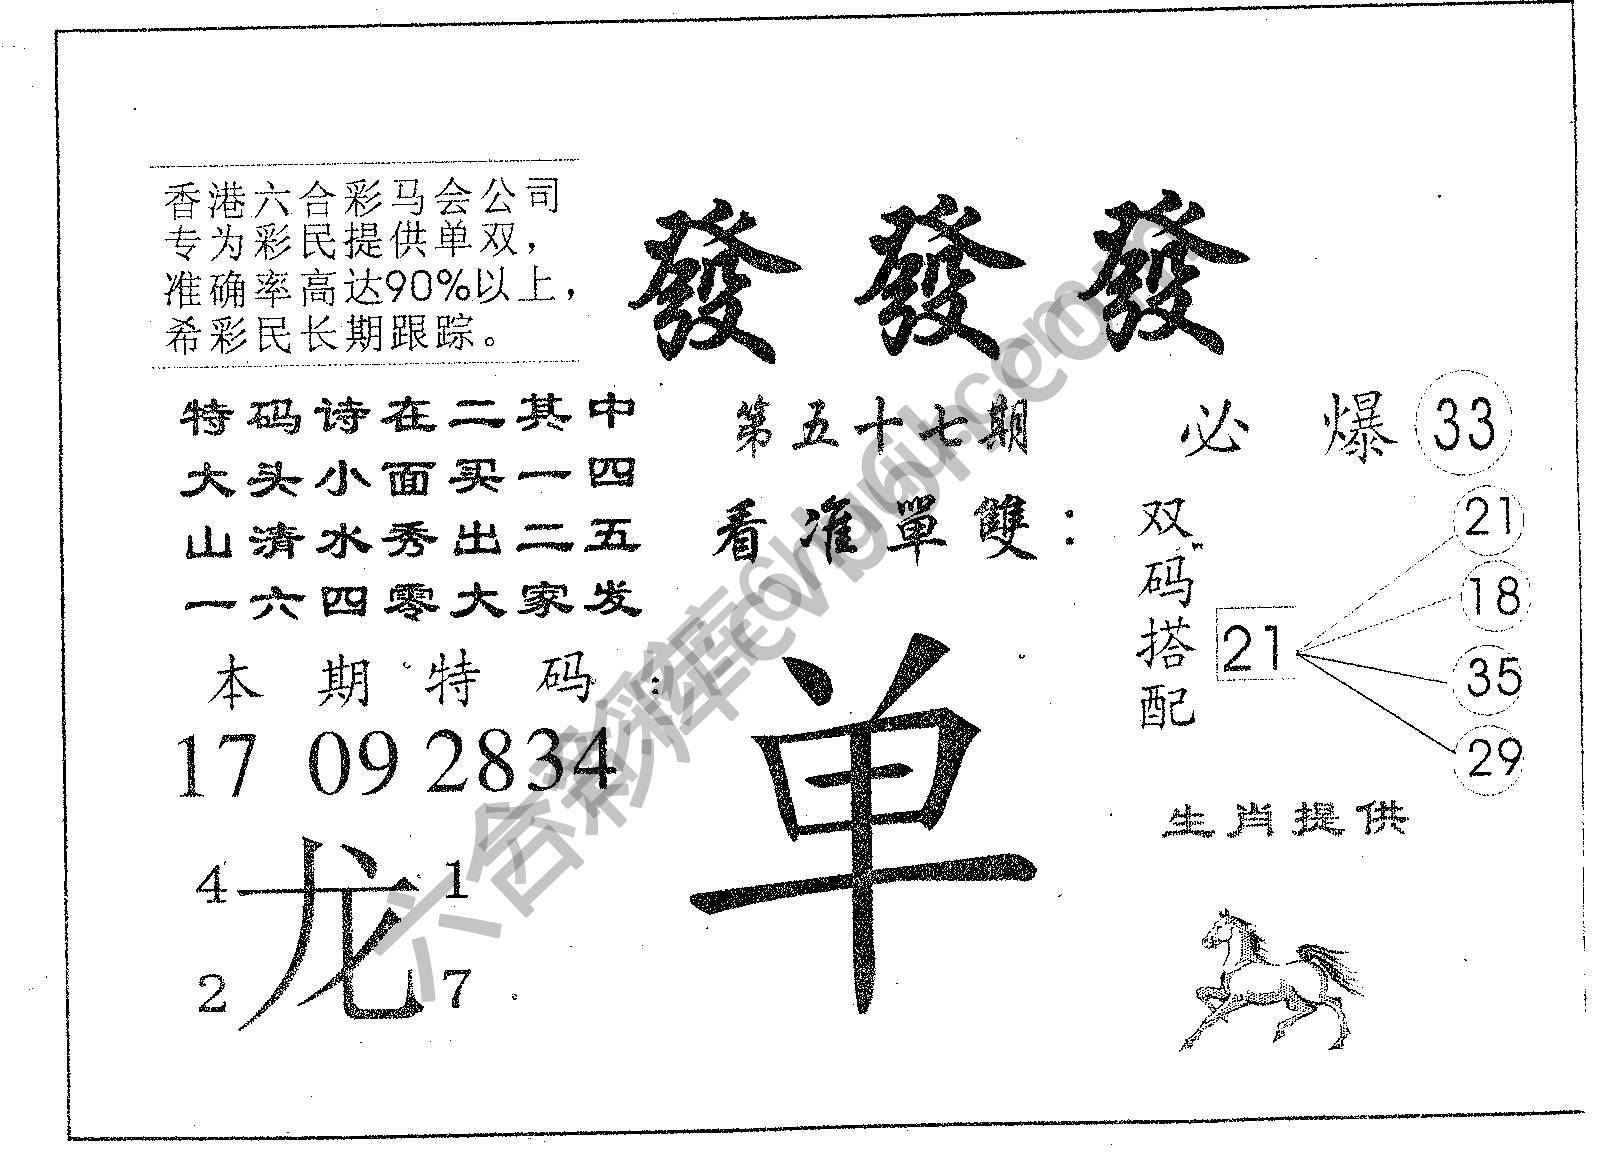 香港六合彩马会公司
专为彩民提供单双，
准确率高达90%以上，
希彩民长期跟踪。
發 發 發
特码诗在二其中
大头小面买一四
山清水秀出二五
一六四零大家发
第五十七期
必 爆 33
看准單雙：
双码搭配
21
21
18
35
29
本期特码：
17 09 28 34
单
生肖提供
4 龙 1
2 7
六合彩库